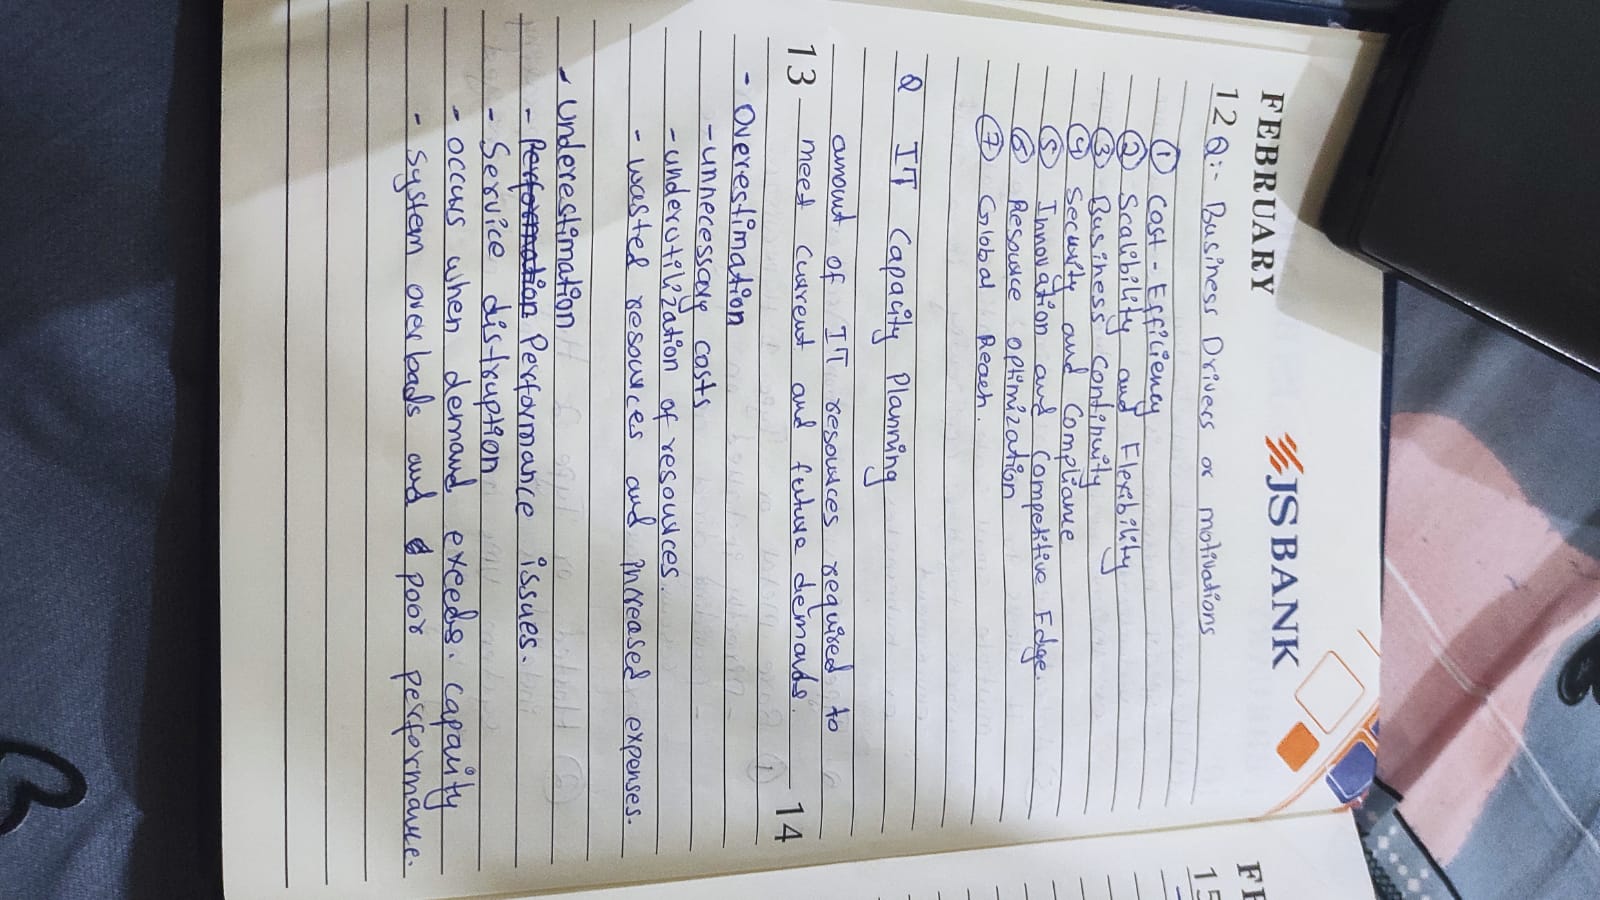 FEBRUARY
JS BANK
12 Q:- Business Drivers or motivations
① Cost - Efficiency
② Scalibility and Flexibility
③ Business Continuity
④ Security and Compliance
⑤ Innovation and Competitive Edge.
⑥ Resource optimization
⑦ Global Reach.
Q IT Capacity Planning
amount of IT resources required to
13 meet current and future demands. 14
- Overestimation
- unnecessary costs
- underutilization of resources.
- wasted resources and increased expenses.
- Underestimation
- Performation Performance issues.
- Service distruption
- occurs when demand exeeds. capacity
- System overloads and poor performance.
15